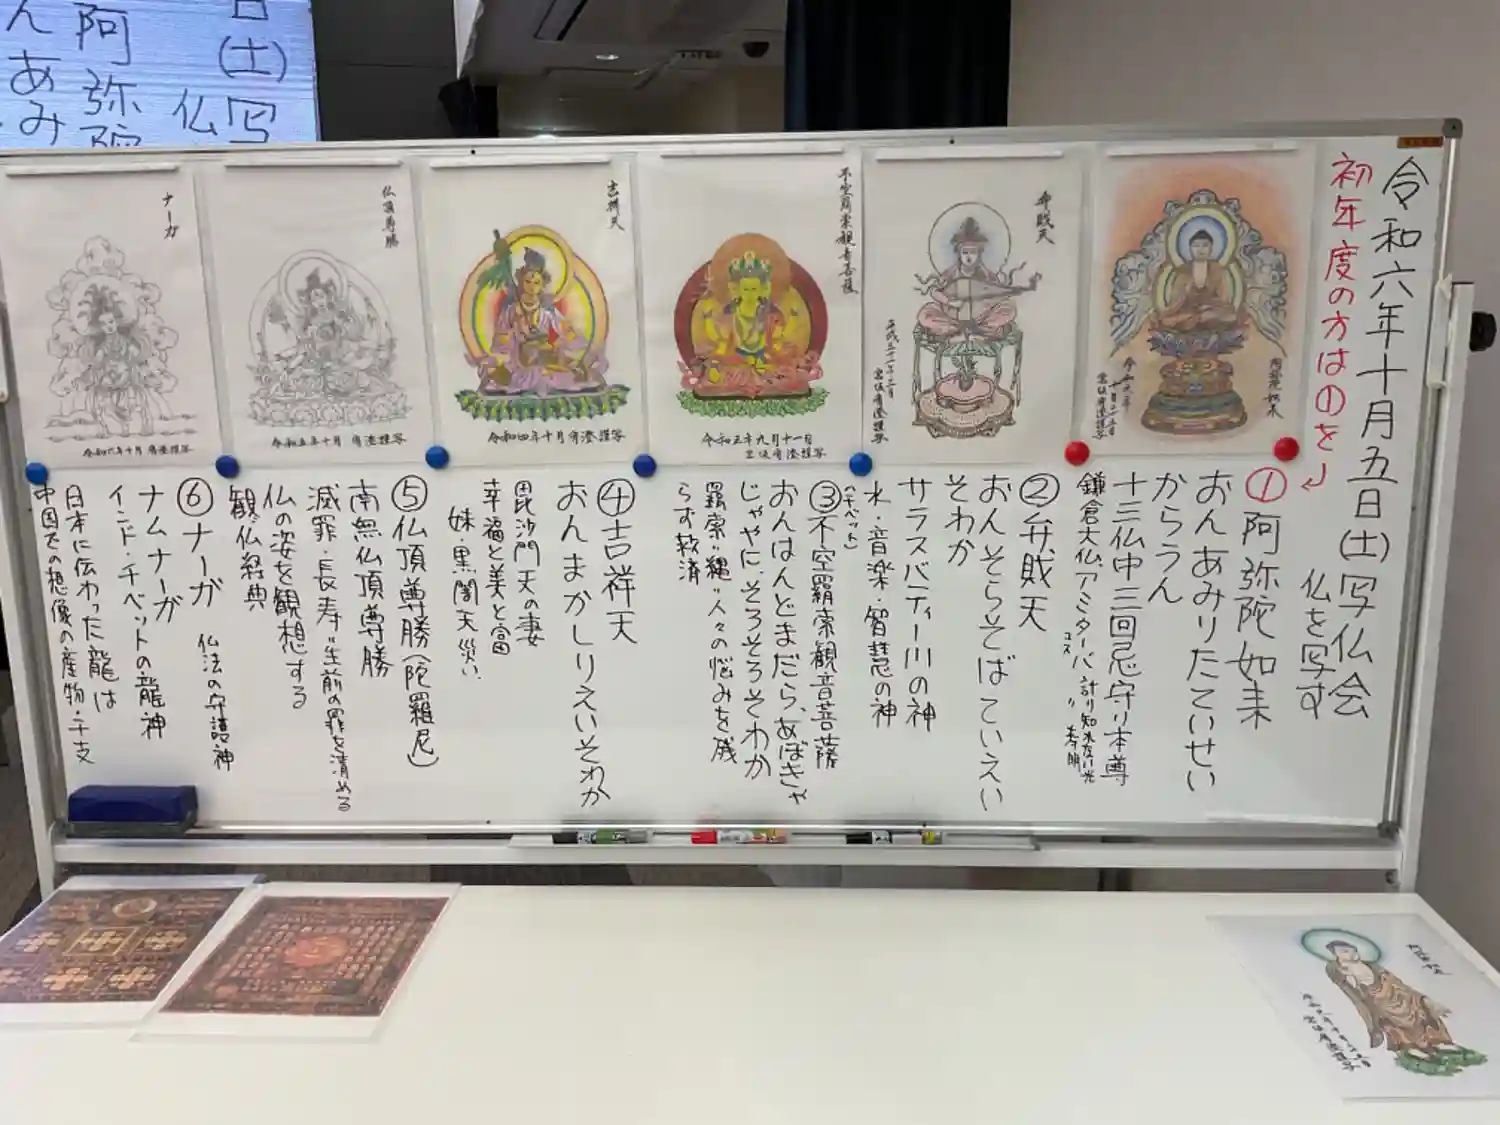 令和六年十月五日(土)写仏会
仏を写す
初年度の方は①を
①阿弥陀如来
おんあみりたていせい
からうん
十三仏中三回忌守り本尊
鎌倉大仏、アミターバ 計り知れない光
〃 寿命
②弁財天
おんそらそばていえい
そわか
サラスバティー川の神
水・音楽・智慧の神
(チベット)
③不空羂索観音菩薩
おんはんどまだら、あぼきゃ
じゃやに、そろそろそわか
羂索〃縄〃人々の悩みを残
らず救済
④吉祥天
おんまかしりえいそわか
毘沙門天の妻
幸福と美と富
妹・黒闇天 災い
⑤仏頂尊勝(陀羅尼)
南無仏頂尊勝
滅罪・長寿〃生前の罪を清める
仏の姿を観想する
観仏経典
⑥ナーガ 仏法の守護神
ナムナーガ
インド・チベットの龍神
日本に伝わった龍は
中国での想像の産物・干支
阿弥陀如来
弁財天
不空羂索観音菩薩
令和五年九月十一日
吉祥天
令和四年十月
仏頂尊勝
令和五年十月
ナーガ
令和六年十月
日(土)写
仏
阿弥陀
んあみ